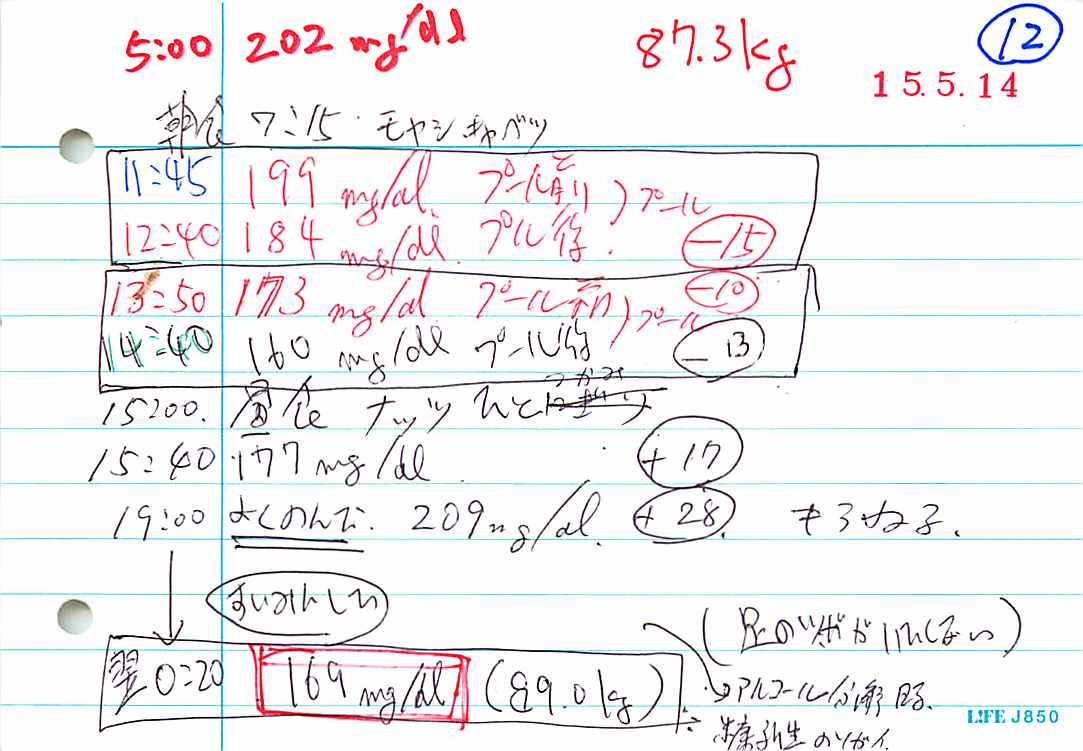 5:00 202 mg/dl 87.3kg ⑫
15.5.14
朝食 7:15 モヤシ キャベツ
11:45 199 mg/dl. プール前 プール
12:40 184 mg/dl. プル後. -15
13:50 173 mg/dl プール前 プール -10
14:40 160 mg/dl プール後 -13
15:00. 昼食 ナッツ ひとつかみ
15:40 177 mg/dl +17
19:00 よくのんで. 209mg/dl. +28. もうねる.
すいみんしてい
(足のツボがいたくない)
翌0:20 169 mg/dl (89.0kg)
アルコール分解
糖新生
LIFE J850